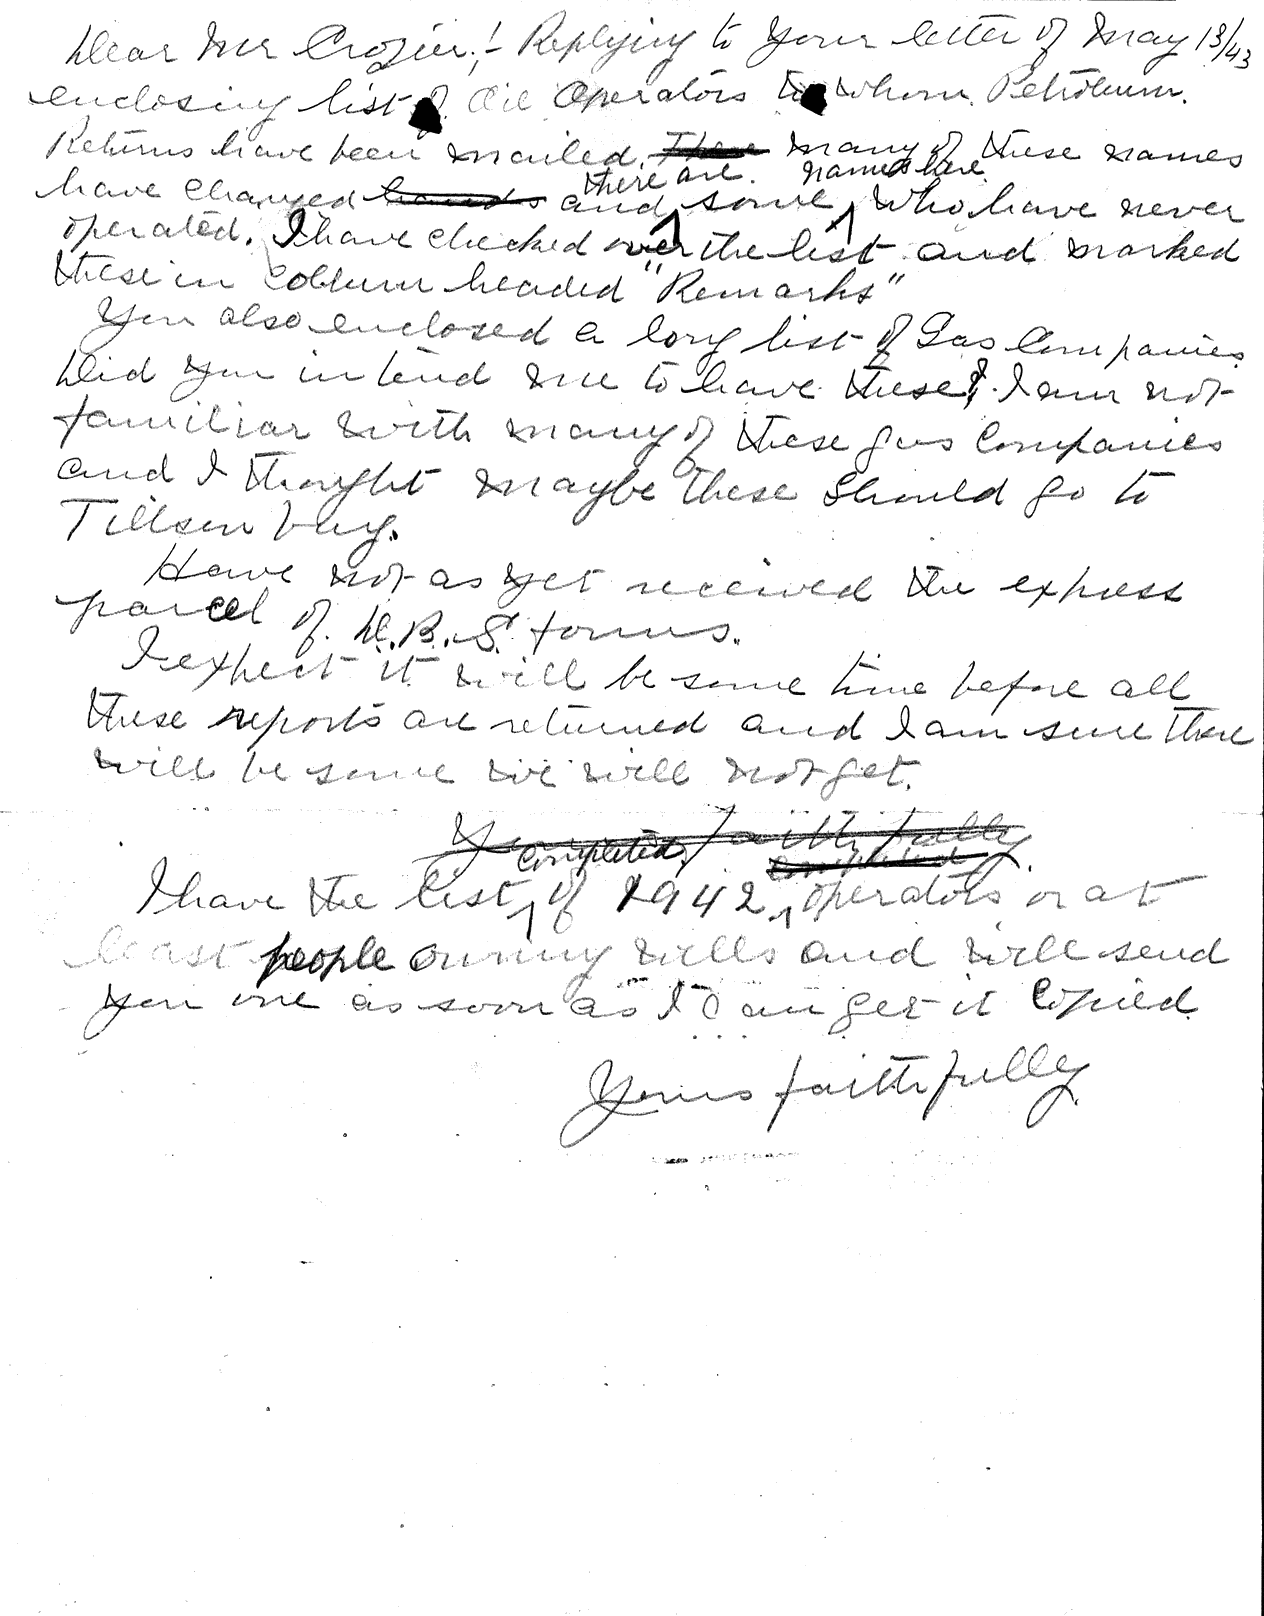 Dear Mr Crozier:- Replying to your letter of May 13/43
enclosing list of Oil Operators to whom Petroleum
Returns have been mailed. There many of these names
there are names here
have changed hands and some who have never
operated. I have checked over the list and marked
these in collumn headed "Remarks"
You also enclosed a long list of Gas Companies.
Did you intend me to have these? I am not
familiar with many of these gas Companies
and I thought maybe these should go to
Tillsonburg.
Have not as yet received the express
parcel of D.B.S. forms.
I expect it will be some time before all
these reports are returned and I am sure there
will be some we will not get.
Yours faithfully
completed completed
I have the list of 1942 operators or at
least people owning wells and will send
you one as soon as I can get it copied.
Yours faithfully